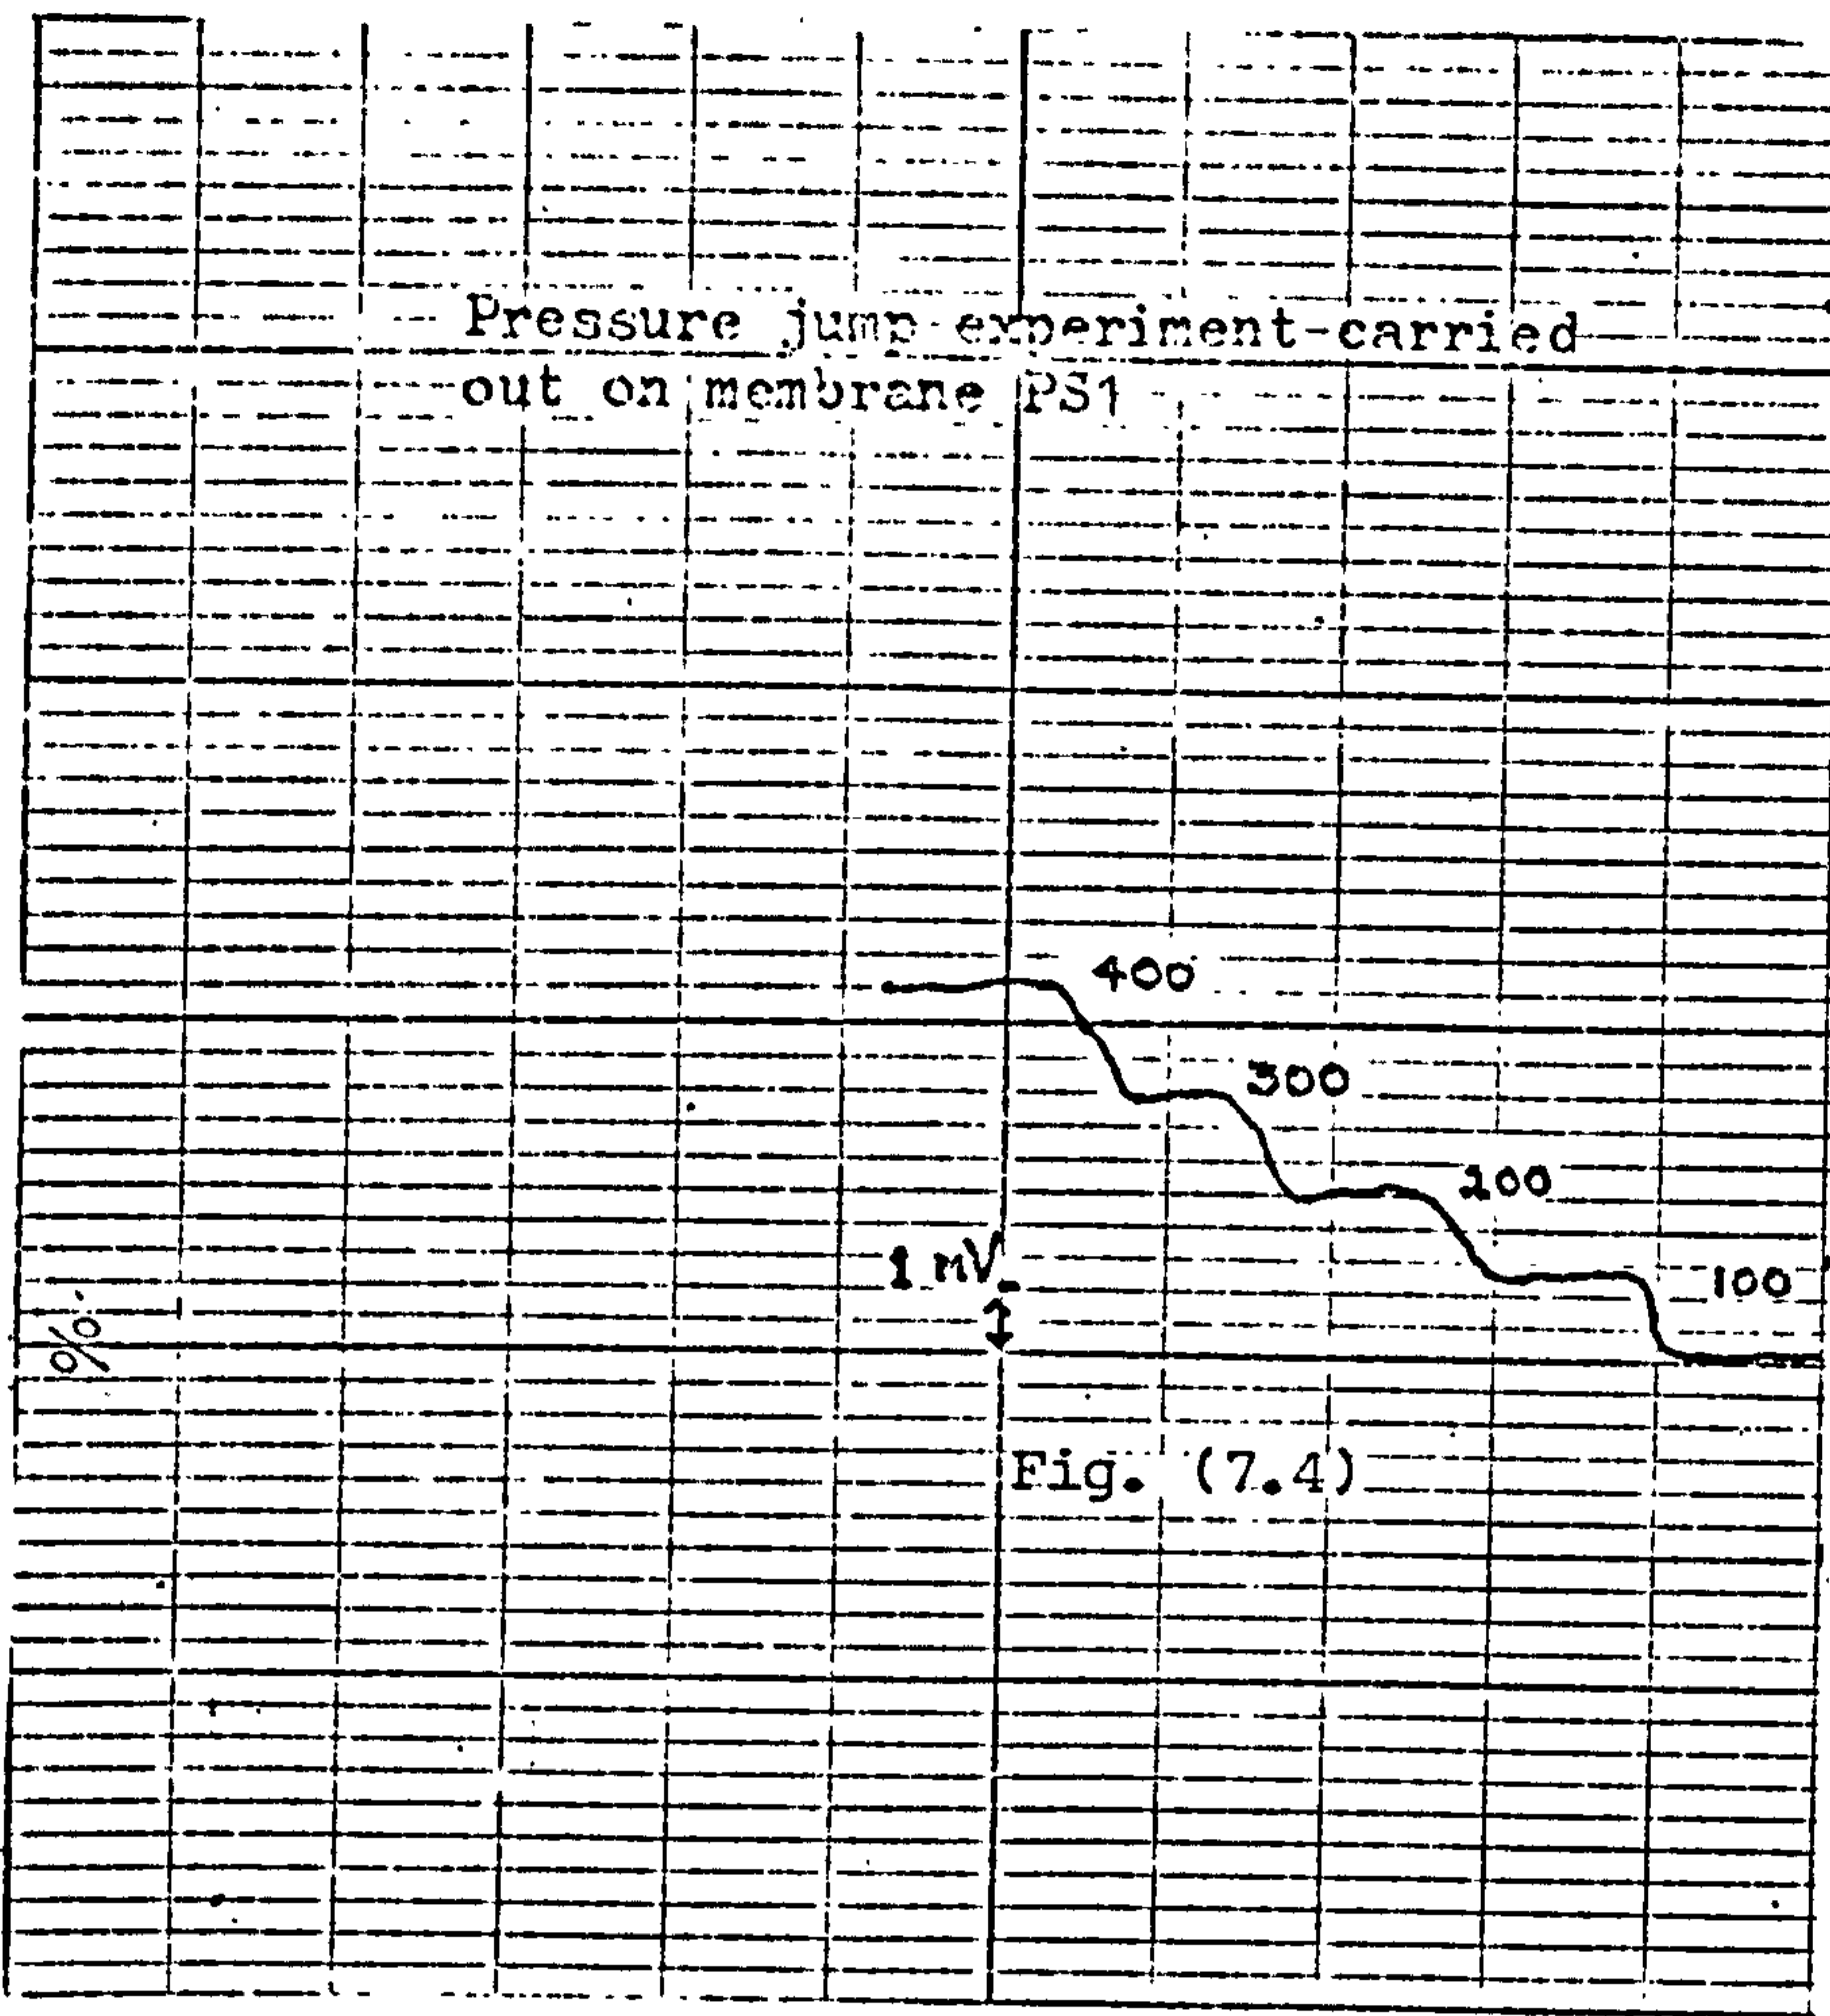 Pressure jump experiment-carried
out on membrane PS1
400
300
200
1 mV.
100
%
Fig. (7.4)